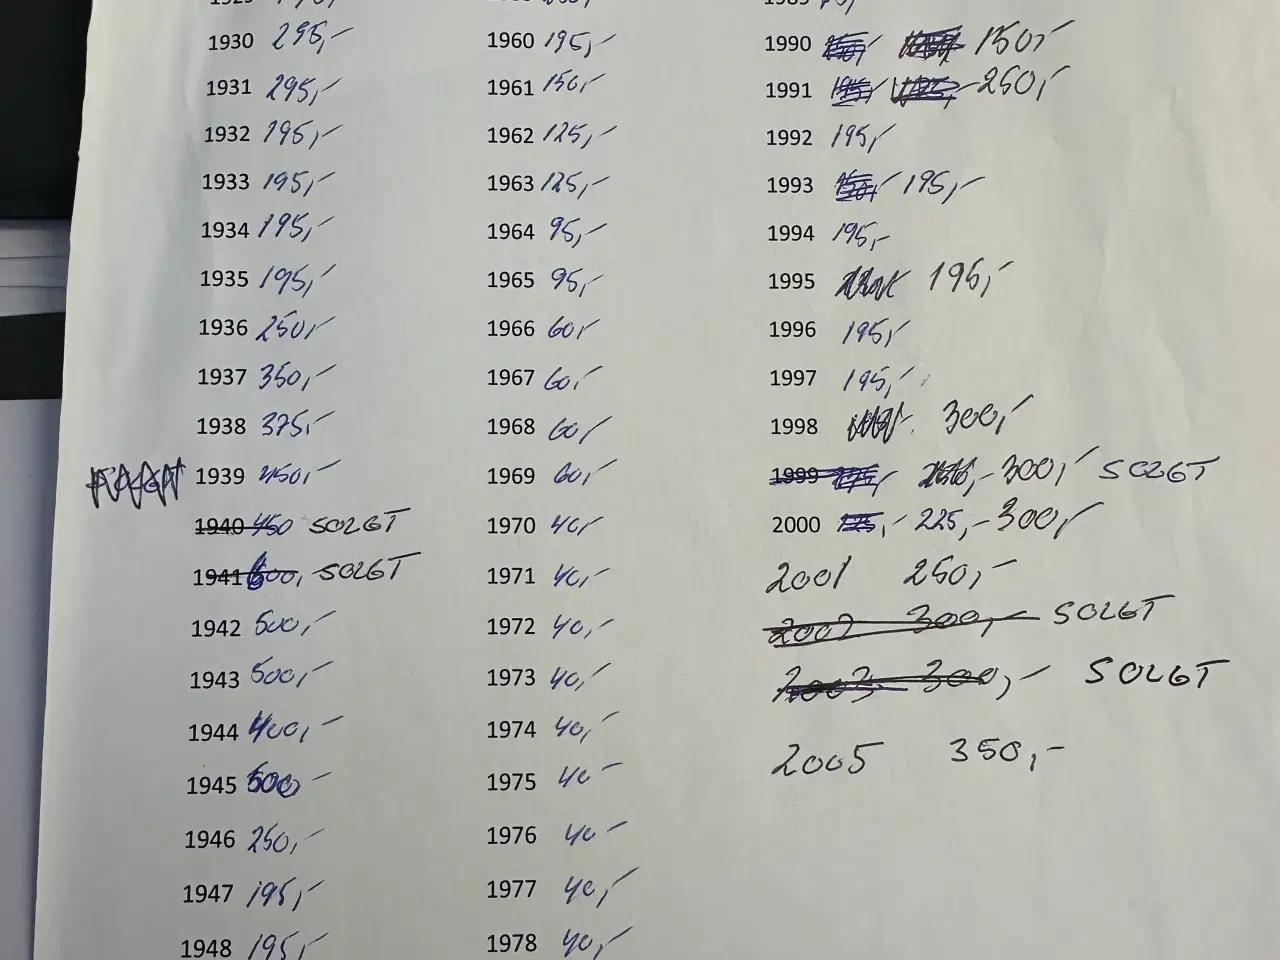 1930 295,-
1931 295,-
1932 195,-
1933 195,-
1934 195,-
1935 195,-
1936 250,-
1937 350,-
1938 375,-
1939 450,-
1940 450 SOLGT
1941 600,- SOLGT
1942 500,-
1943 500,-
1944 400,-
1945 500 -
1946 250,-
1947 195,-
1948 195,-
1960 195,-
1961 150,-
1962 125,-
1963 125,-
1964 95,-
1965 95,-
1966 60,-
1967 60,-
1968 60,-
1969 60,-
1970 40,-
1971 40,-
1972 40,-
1973 40,-
1974 40,-
1975 40 -
1976 40 -
1977 40,-
1978 40,-
1990 150,-
1991 250,-
1992 195,-
1993 195,-
1994 195,-
1995 195,-
1996 195,-
1997 195,-
1998 300,-
1999 300,- SOLGT
2000 225,- 300,-
2001 250,-
2002 300,- SOLGT
2003 300,- SOLGT
2005 350,-